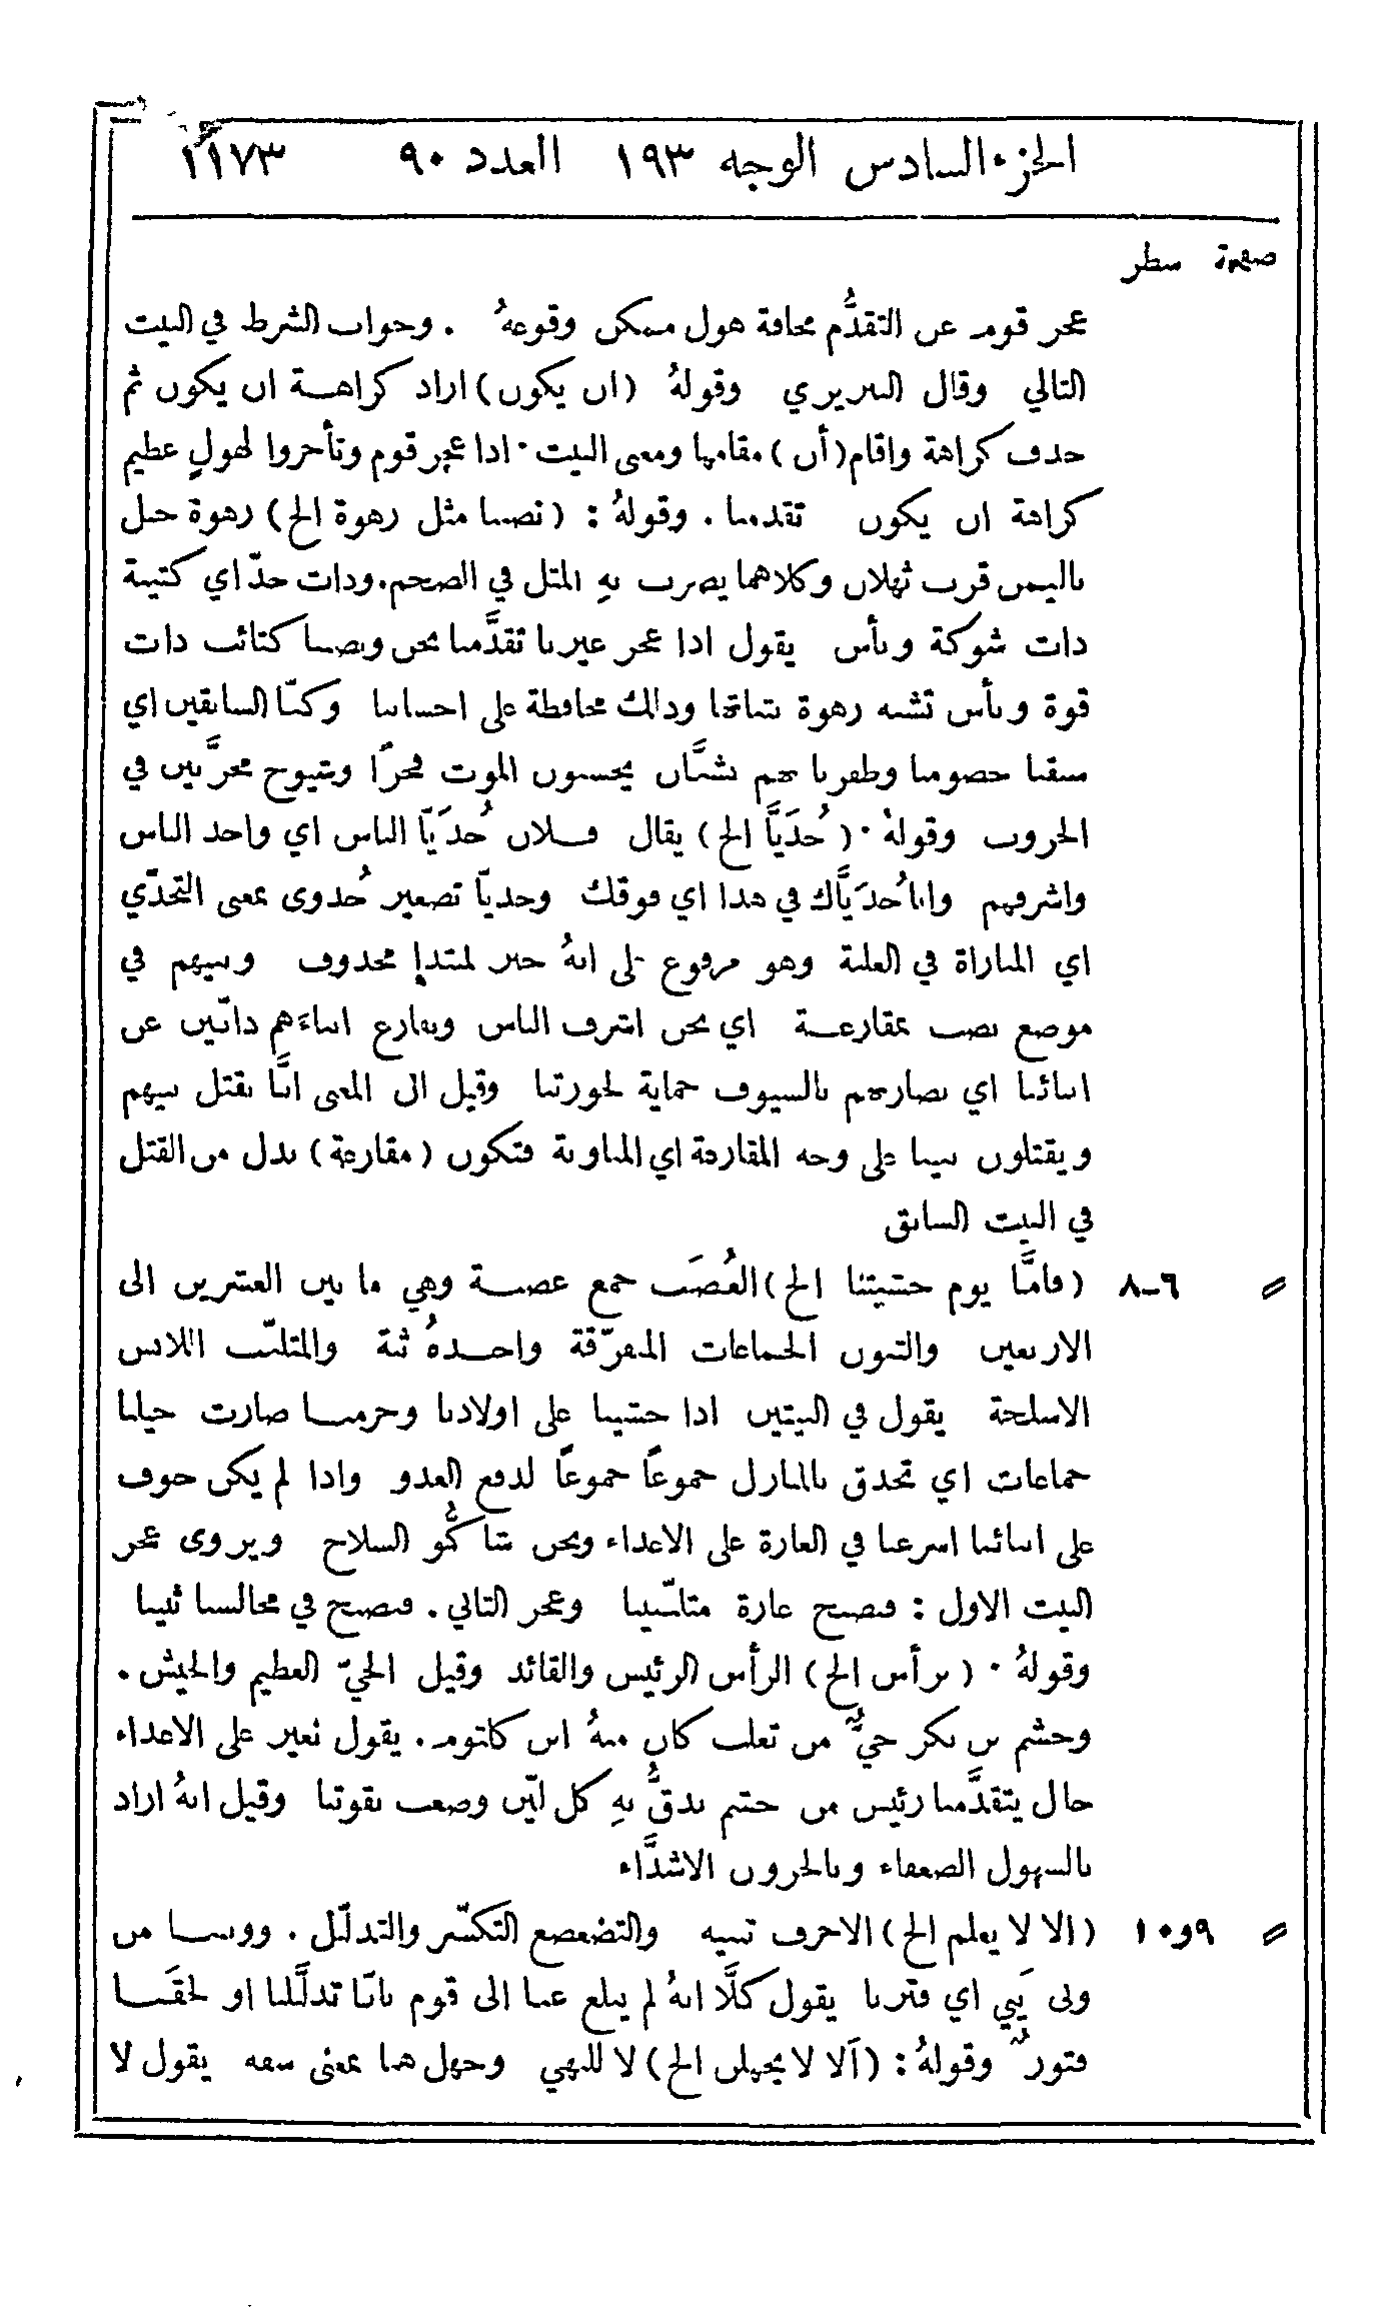 الجزء السادس الوجه ١٩٣ العدد ٩٠ ١١٧٣
صفحة سطر
عجز قوم عن التقدُّم مخافة هول ممكن وقوعهُ . وجواب الشرط في البيت
التالي وقال التبريزي وقولهُ (ان يكون) اراد كراهـة ان يكون ثم
حذف كراهة واقام (أن) مقامها ومعنى البيت · اذا عجز قوم وتأخروا لهولٍ عظيم
كراهة ان يكون تقدمنا . وقولهُ : (نصبنا مثل رهوة الخ) رهوة جبل
باليمن قرب ثهلان وكلاهما يضرب بهِ المثل في الضخم. وذات حدّ اي كتيبة
ذات شوكة وبأس يقول اذا عجز غيرنا تقدَّمنا نحن ونصبنا كتائب ذات
قوة وبأس تشبه رهوة بثباتها وذلك محافظة على احسابنا وكنَّا السابقين اي
سبقنا خصومنا وظفرنا بهم بشبَّان يحسبون الموت فخرًا وشيوخ مجرَّبين في
الحروب وقولهُ · (حُدَيَّا الخ) يقال فـلان حُدَيَّا الناس اي واحد الناس
واشرفهم وانا حُدَيَّاك في هذا اي فوقك وحديّا تصغير حُدوى بمعنى التحدّي
اي المباراة في الغلبة وهو مرفوع على انهُ خبر لمبتدإ محذوف وبنيهم في
موضع نصب بمقارعـة اي نحن اشرف الناس ونقارع ابناءَهم ذابّين عن
ابنائنا اي نضاربهم بالسيوف حماية لحوزتنا وقيل ان المعنى انَّا نقتل بنيهم
ويقتلون بنينا على وجه المقارعة اي المناوبة فتكون (مقارعة) بدل من القتل
في البيت السابق
〃 ٦-٨ (فامَّا يوم خشيتنا الخ) العُصَب جمع عصبـة وهي ما بين العشرين الى
الاربعين والثبون الجماعات المتفرّقة واحـدهُ ثبة والمتلبّب اللابس
الاسلحة يقول في البيتين اذا خشينا على اولادنا وحرمنـا صارت خيلنا
جماعات اي تحدق بالمنازل جموعًا جموعًا لدفع العدو واذا لم يكن خوف
على ابنائنا اسرعنا في الغارة على الاعداء ونحن شاكُّو السلاح ويروى عجز
البيت الاول : فنصبح غارة متلبّبينا وعجز التالي . فنصبح في مجالسنا ثبينا
وقولهُ · (برأس الخ) الرأس الرئيس والقائد وقيل الحيّ العظيم والجيش .
وجشم بن بكر حيٌّ من تغلب كان منهُ ابن كلثوم . يقول نغير على الاعداء
حال يتقدَّمنا رئيس من جشم ندقُّ بهِ كل ليّن وصعب بقوتنا وقيل انهُ اراد
بالسهول الضعفاء وبالحزون الاشدَّاء
〃 ٩و١٠ (الا لا يعلم الخ) الا حرف تنبيه والتضعضع التكسّر والتذلّل . وونينـا من
ونى يَني اي فترنا يقول كلَّا انهُ لم يبلغ عنا الى قوم باننا تذلَّلنا او لحقَنـا
فتورٌ وقولهُ : (أَلا لا يجهلن الخ) لا للنهي وجهل هنا بمعنى سفه يقول لا